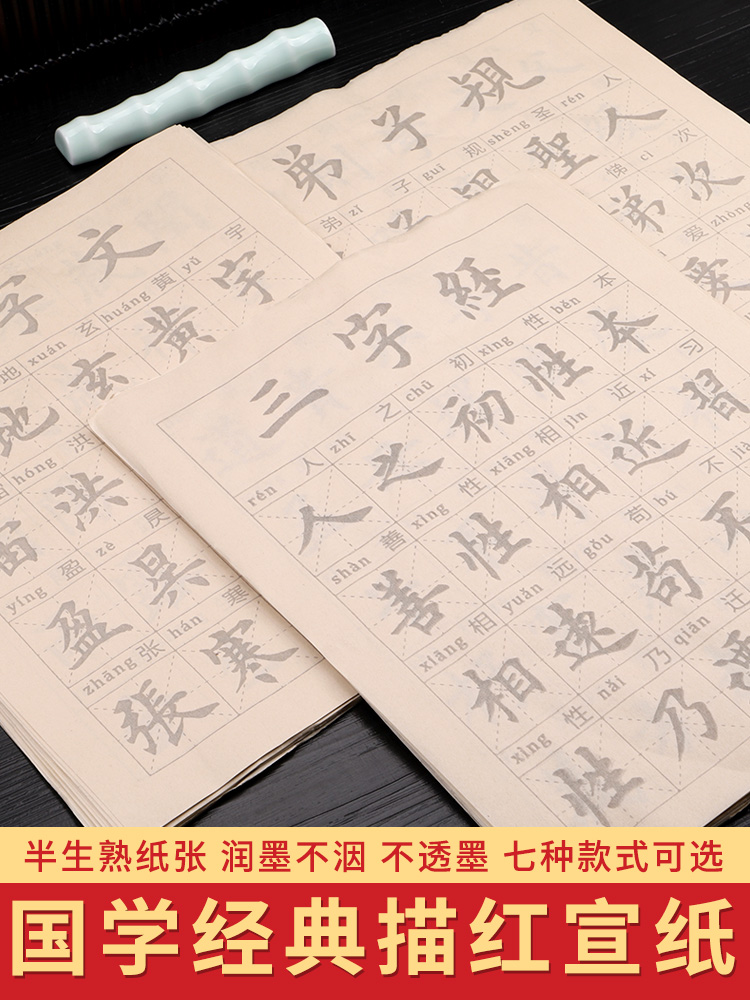 弟子規
弟 zǐ 子 guī 规 shèng 圣 rén 人
子 規 聖 人
悌 cì 次
次
爱 zhòng
愛
字文
地 xuán 玄 huáng 黄 yǔ 宇
地 玄 黃 宇
宙 hóng 洪
宙 洪
yíng 盈 zè 昃
盈 昃
zhāng 张 hán 寒
張 寒
三字經
rén 人 zhī 之 chū 初 xìng 性 běn 本
人 之 初 性 本
shàn 善 xìng 性 xiāng 相 jìn 近 xí 习
善 性 相 近 習
xiāng 相 yuǎn 远 gǒu 苟 bú 不
相 遠 苟 不
xìng 性 nǎi 乃 qiān 迁
性 乃
半生熟纸张 润墨不洇 不透墨 七种款式可选
国学经典描红宣纸